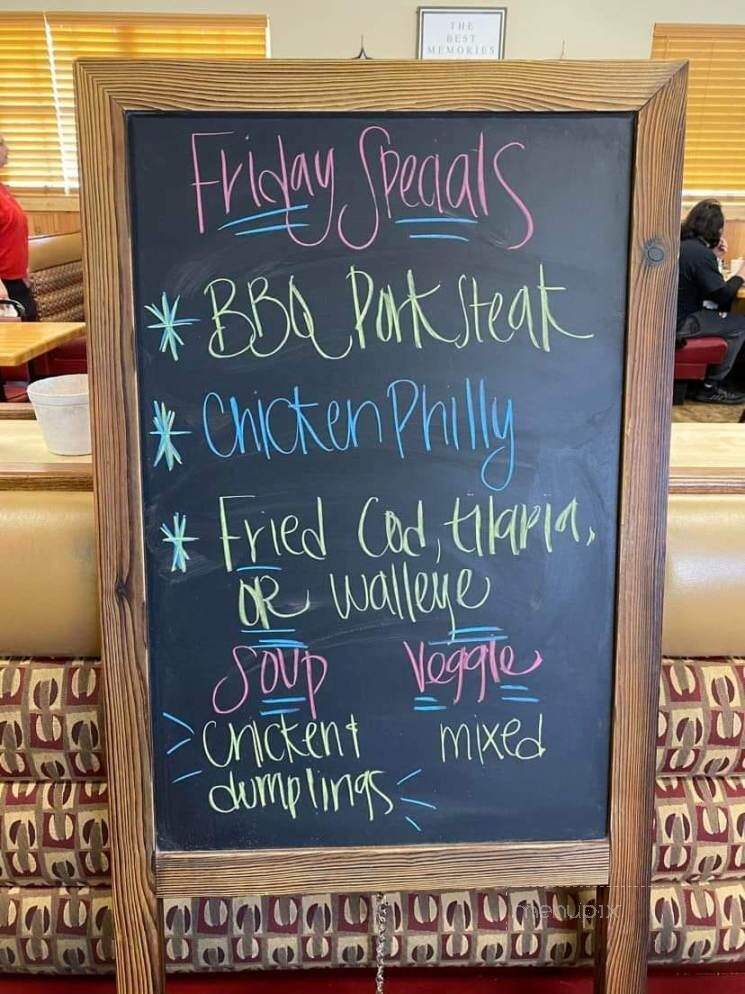 THE
BEST
MEMORIES
Friday Specials
* BBQ Pork Steak
* Chicken Philly
* Fried Cod, tilapia,
OR walleye
Soup Veggie
Chicken & mixed
dumplings
menupix